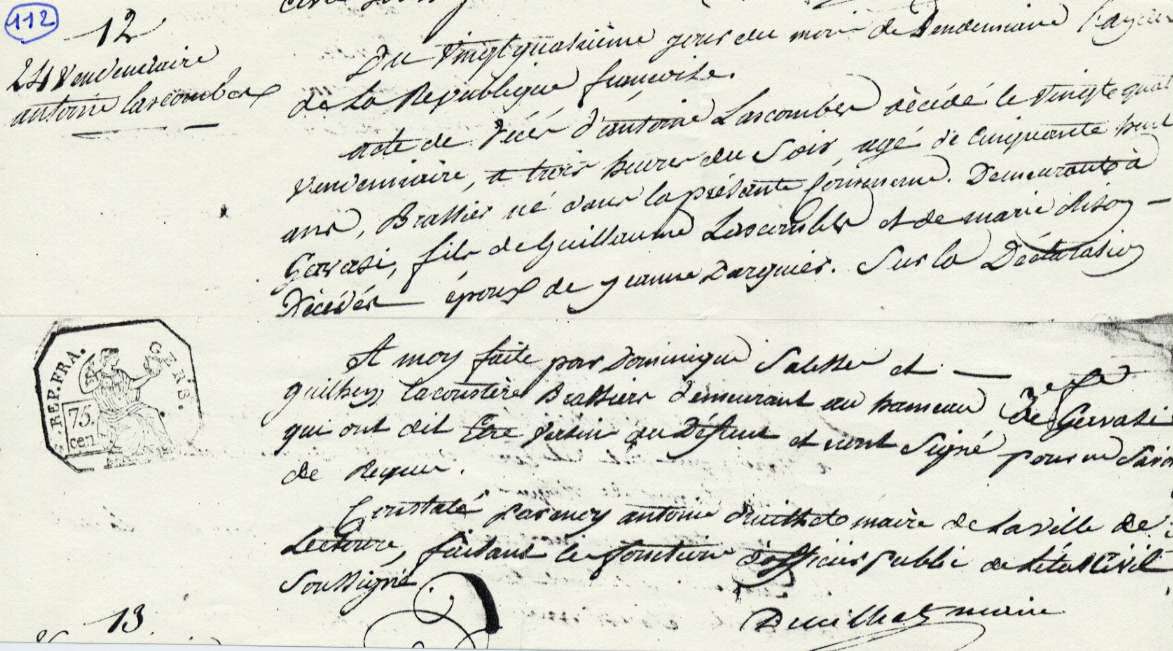 112
12
24 Vendemiaire
antoine Lascombes
Du Vingtquatrième jour du mois de Vendemiaire
de la Republique francoise.
acte de décés d'antoine Lascombes décédé le Vingtequat
Vendemiaire, a trois heures du Soir, agé de Cinquante huit
ans, Brassier né dans la présante Commune. Demeurant à
Gervasi, fils de Guillaume Lascombes et de marie
Décédés époux de jeanne Darquier. Sur la Déclaration
REP.FRA.
75
cen
A moy faite par Dominique et
guilhem Lacoustère Brassiers demeurant au hameau De Gervasi
qui ont dit Etre Voisin du Défunt et nont Signé pour ne Savoir
de Requis.
Constaté par moy antoine maire de la Ville de
Lectoure, faisant les fonctions d'officier Public de l'état Civil
Soussigné
maire
13